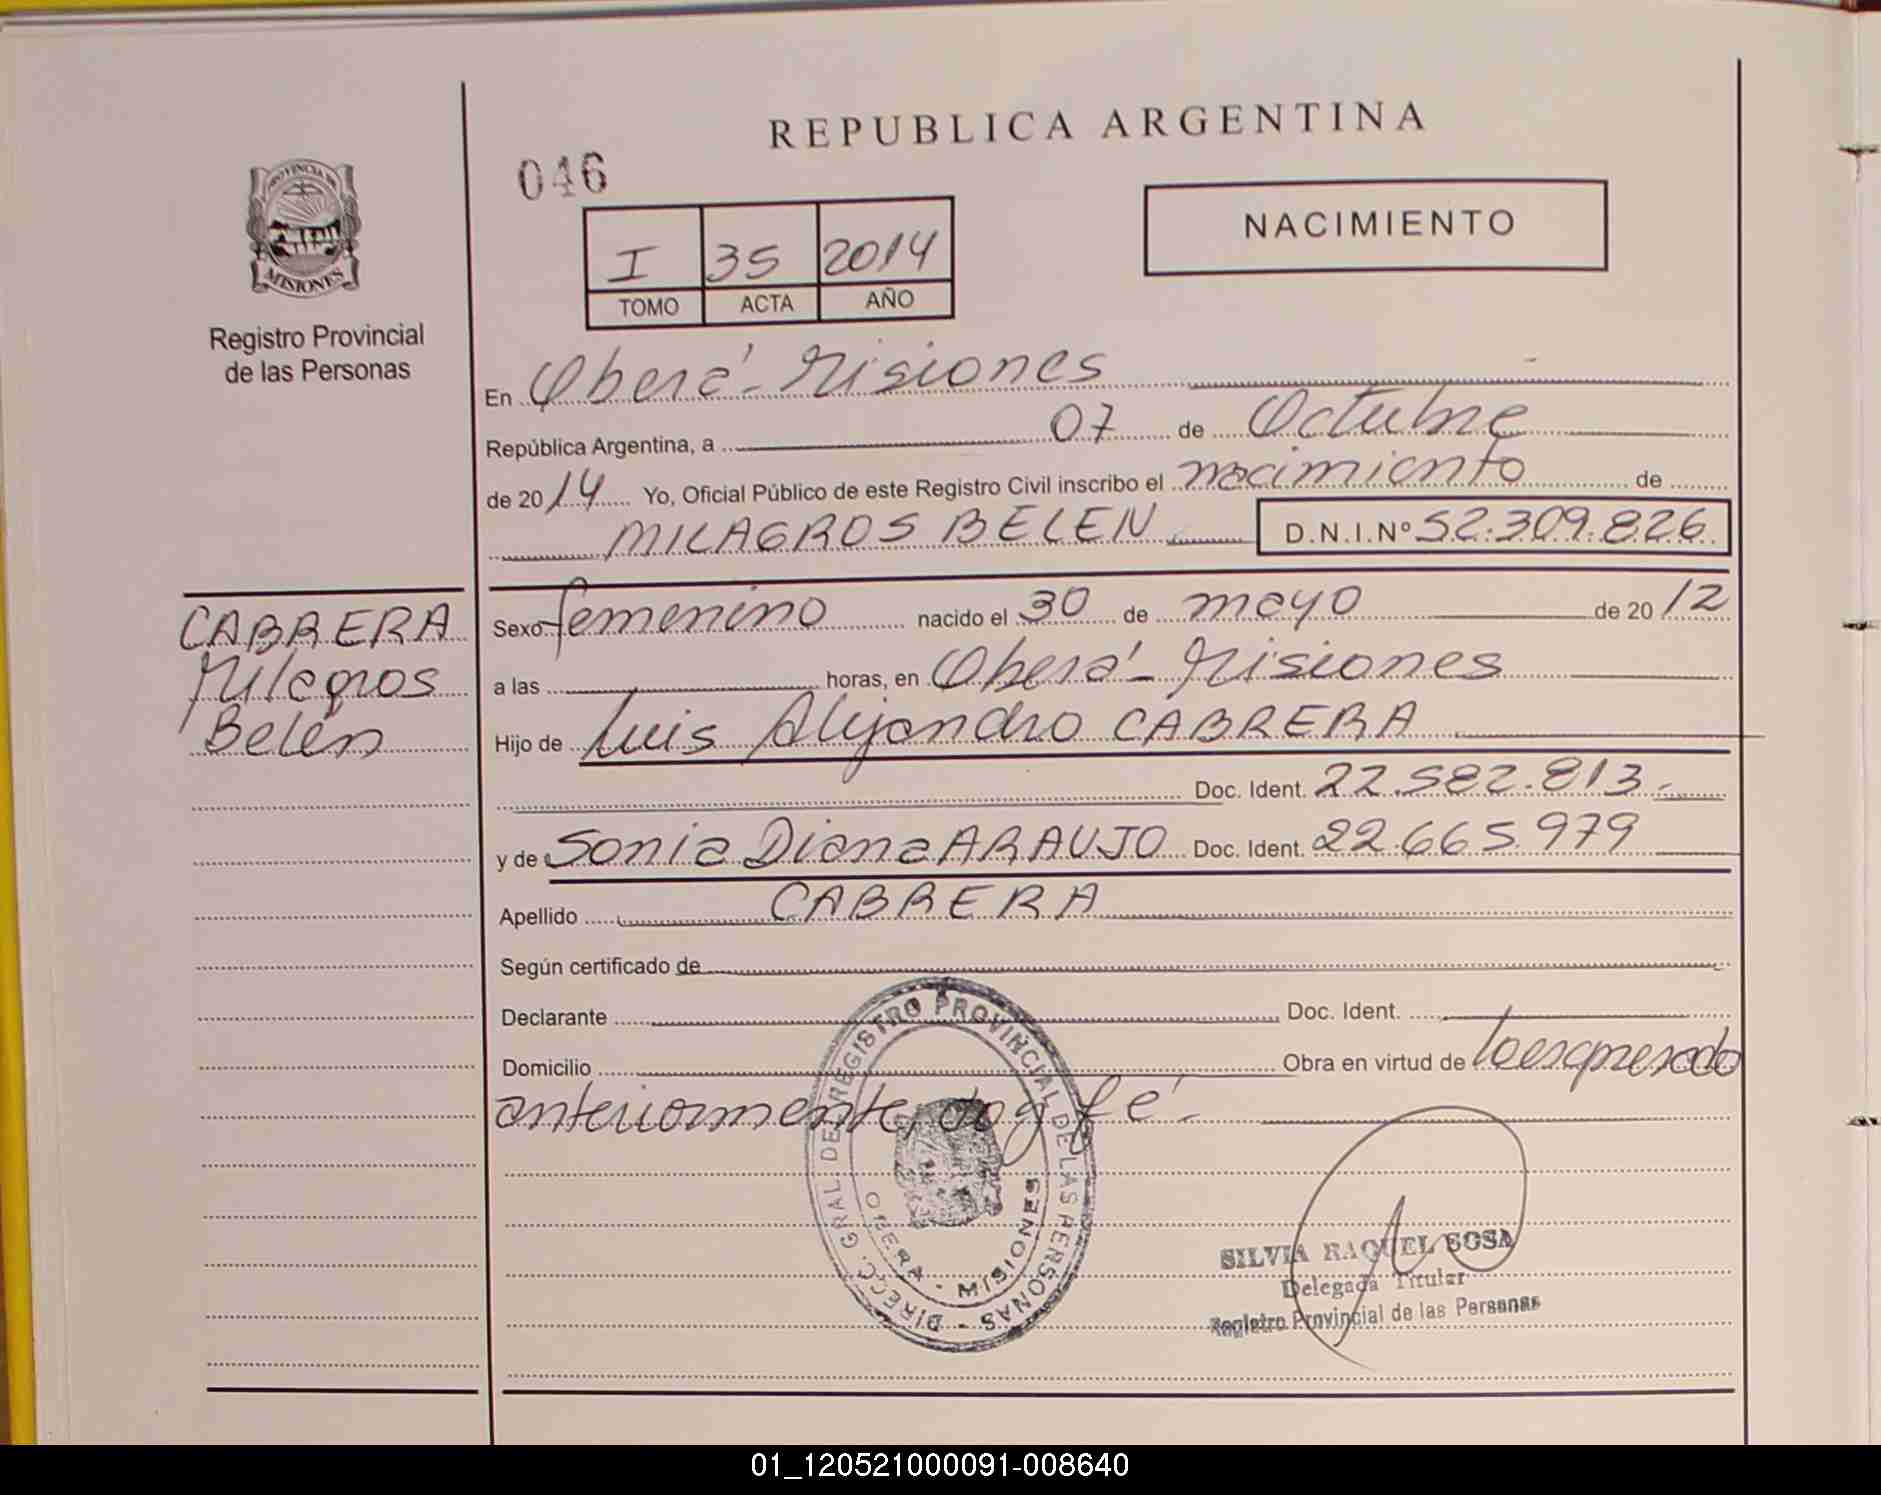 REPUBLICA ARGENTINA
046
NACIMIENTO
I 35 2014
TOMO ACTA AÑO
PROVINCIA DE
MISIONES
Registro Provincial
de las Personas
En Oberá - Misiones
República Argentina, a 07 de Octubre
de 2014 Yo, Oficial Público de este Registro Civil inscribo el nacimiento de
MILAGROS BELEN D.N.I.Nº 52.309.826
CABRERA
Milagros
Belén
Sexo femenino nacido el 30 de mayo de 2012
a las horas, en Oberá - Misiones
Hijo de Luis Alejandro CABRERA
Doc. Ident. 22.582.813.-
y de Sonia Diana ARAUJO Doc. Ident. 22.665.979
Apellido CABRERA
Según certificado de
Declarante Doc. Ident.
Domicilio Obra en virtud de lo expresado
anteriormente, doy fé.-
DIRECC. GRAL. DE REGISTRO PROVINCIAL DE LAS PERSONAS -
OBERA - MISIONES
SILVIA RAQUEL SOSA
Delegada Titular
Registro Provincial de las Personas
01_120521000091-008640